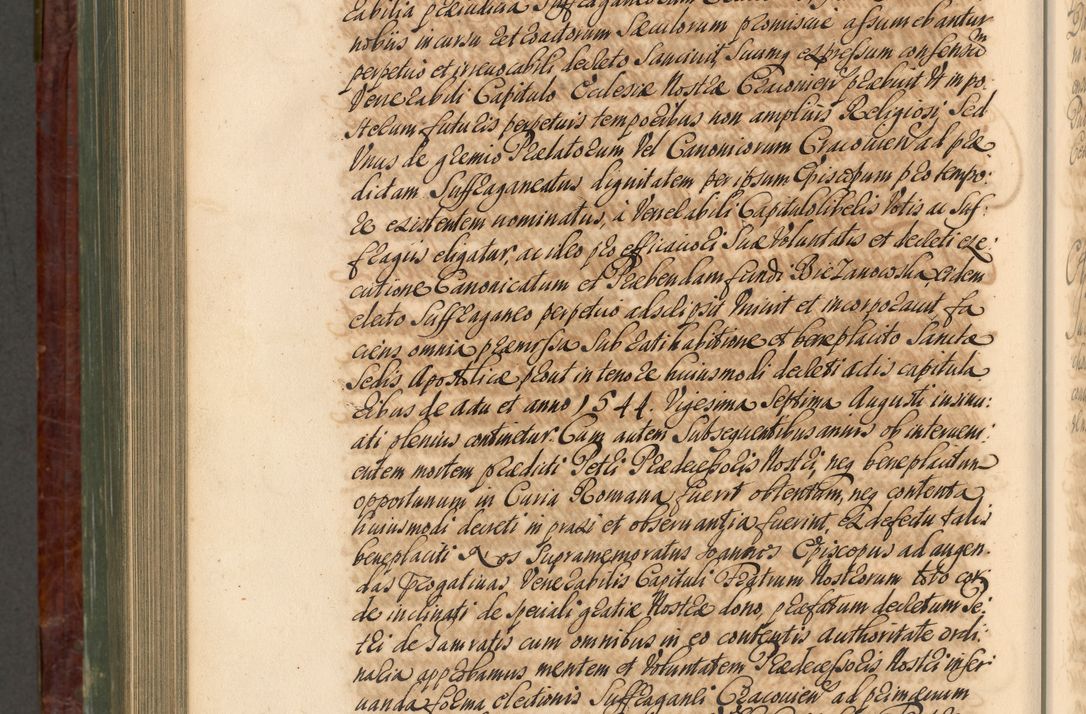 rabilia præiudicia Suffraganeorum
nobijs in cursu retroactorum Sæculorum promiscue assumebantur
perpetuo et irreuocabili decreto Sanciuit Suamq expressum consensũ
Venerabili Capitulo Ecclesiæ Nostræ Cracovien præbuit Vt in po:
sterum futuris perpetuis temporibus non amplius Religiosi, Sed
Vnus de gremio Prælatorum Vel Canonicorum Cracouien ad præ
dictam Suffraganeatus dignitatem per ipsum Episcopum pro tempo:
re existentem nominatus, à Venerabili Capitulo liberis Votis ac Suf:
fragijs eligatur, ac ideo pro efficaciori Suæ Voluntatis et decreti exe:
cutione Canonicatum et Præbendam fundi Bieżanowska, eidem
electo Suffraganeo perpetuo adscripsit Vniuit et incorporauit fa
ciens omnia præmissa Sub ratihabitione et beneplacito Sanctæ
Sedis Apostolicæ prout in tenore huiusmodi decreti actis capitula
ribus de actu et anno 1544. Vigesima Septima Augusti insinu:
ati plenius continetur. Cum autem Subsequentibus annis ob interueni:
entem mortem prædicti Petri Prædecessoris Nostri, neq beneplacitum
opportunum in Curia Romana fuerit obtentum, neq contenta
huiusmodi decreti in praxi et obseruantia fuerint, ex defectu talis
beneplaciti Nos Supramemoratus Joannes Episcopus ad augen
das Prærogatiuas Venerabilis Capituli Fratrum Nostrorum toto cor
de inclinati de speciali gratiæ Nostræ dono, præfatum decretum Pe:
tri de Gamratis cum omnibus in eo contentis authoritate ordi:
naria approbamus mentem et Voluntatem Prædecessoris Nostri inser
uanda forma electionis Suffraganei Cracouien ad perimænum